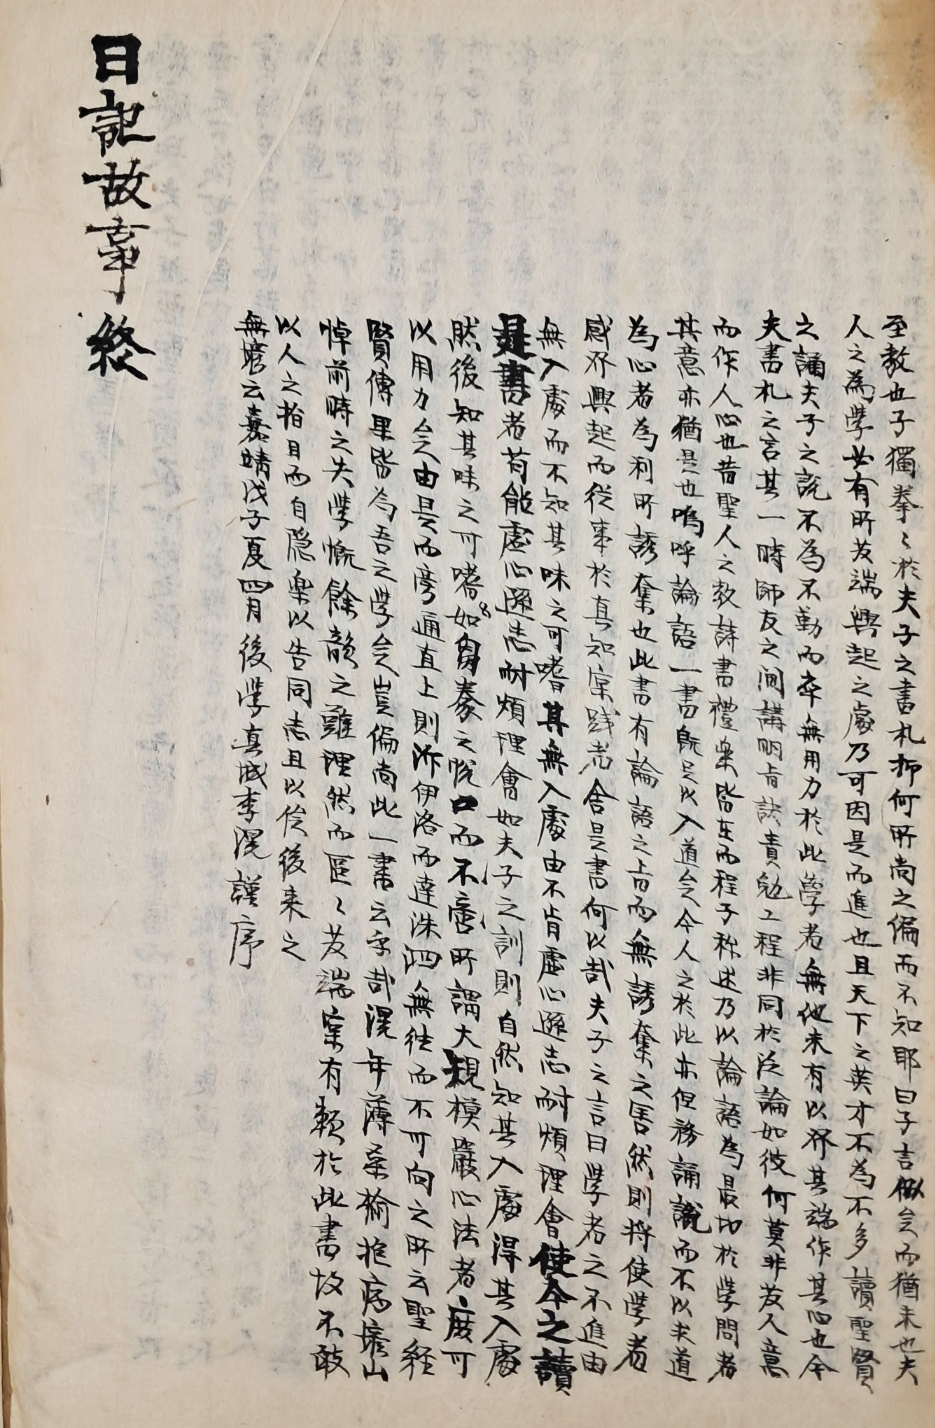 至教也子獨拳〻於夫子之書札抑何所尚之偏而不知耶曰子言似矣而猶未也夫
人之為學必有所發端興起之處乃可因是而進也且天下之英才不為不多讀聖賢
之誦夫子之說不為不勤而卒無用力於此學者無他未有以發其端作其心也今
夫書札之言其一時師友之間講明旨訣責勉工程非同於泛論如彼何莫非發人意
而作人心也昔聖人之教詩書禮樂皆在而程子称述乃以論語為最切於學問者
其意亦猶是也嗚呼論語一書旣足以入道矣今人之於此亦但務誦說而不以求道
為心者為利所誘奪也此書有論語之旨而無誘奪之害然則将使學者
感發興起而從事於真知実踐者舍是書何以哉夫子之言曰學者之不進由
無入處而不知其味之可嗜其無入處由不肯虛心遜志耐煩理會使今之讀
是書者苟能虛心遜志耐煩理會如夫子之訓則自然知其入處得其入處
然後知其味之可嗜如芻豢之悅口而不啻所謂大規模嚴心法者庶可
以用力矣由是而旁通直上則泝伊洛而達洙泗無往而不可向之所云聖經
賢傳果皆為吾之學矣豈偏尚此一書云乎哉滉年薄桑楡抱病窮山
悼前時之失學慨餘韻之難理然而區〻發端実有頼於此書故不敢
以人之指目而自隐樂以告同志且以俟後来之
無窮云嘉靖戊子夏四月後學真城李滉謹序
日記故事終